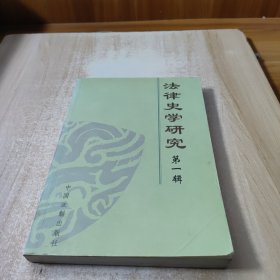 法律史学研究
第一辑
中国法制出版社